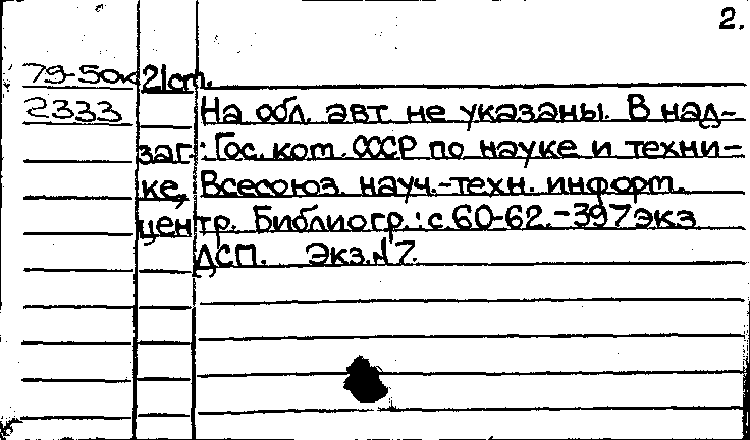 2.
79-50к 21cm.
2333 На обл. авт. не указаны. В над-
заг.: Гос. ком. СССР по науке и техни-
ке, Всесоюз. науч.-техн. информ.
центр. Библиогр.: с. 60-62. - 397 экз
ДСП. Экз. №7.